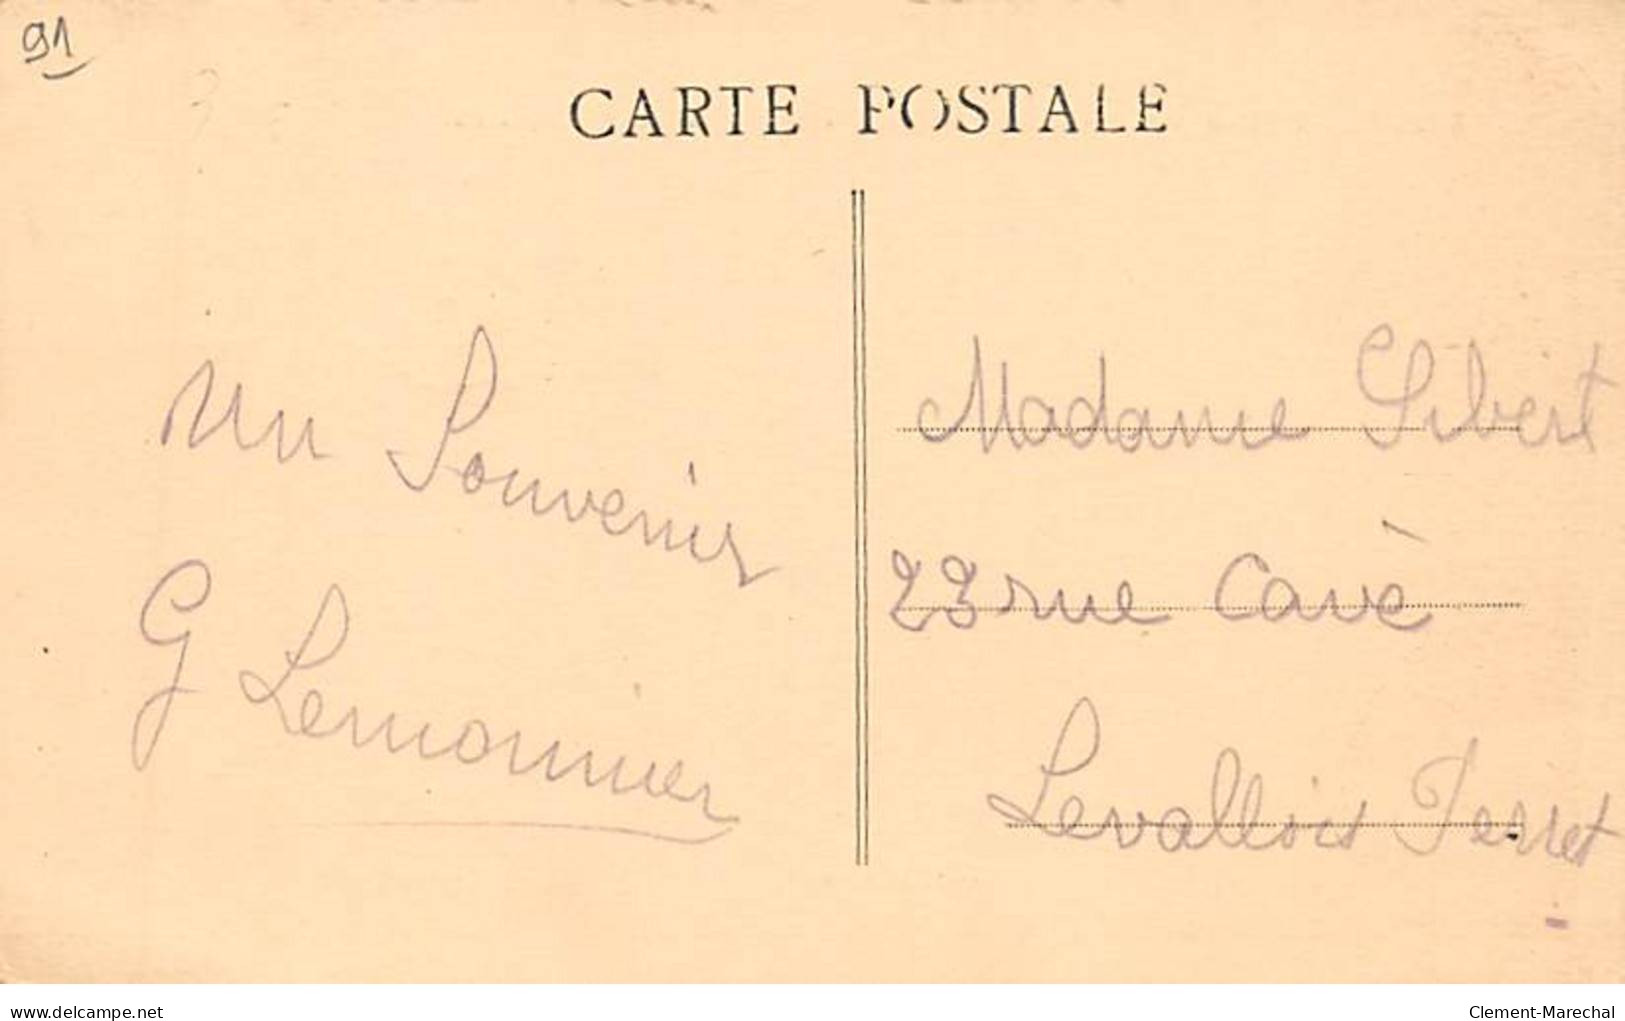 91
CARTE POSTALE
Un Souvenir
G Lemonnier
Madame Sibert
23 rue Cavè
Levallois Perret
delcampe.net
Clement-Marechal